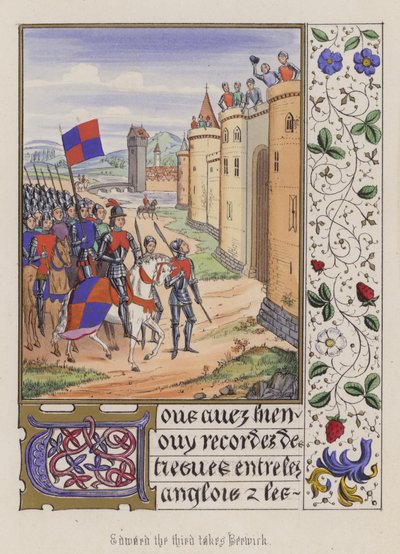 Vous auez bien
ouy recordez de
tresues entre les
anglois ⁊ les-
Edward the third takes Berwick.